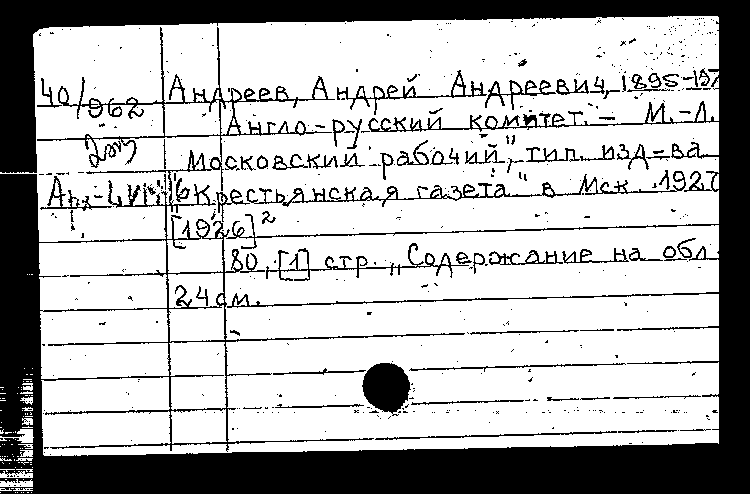 40/962 Андреев, Андрей Андреевич, 1895-197
Англо-русский комитет. – М.-Л.
„Московский рабочий", тип. изд-ва
"Крестьянская газета" в Мск. 1927
[1926]²
80, [1] стр. „Содержание на обл.
24 см.